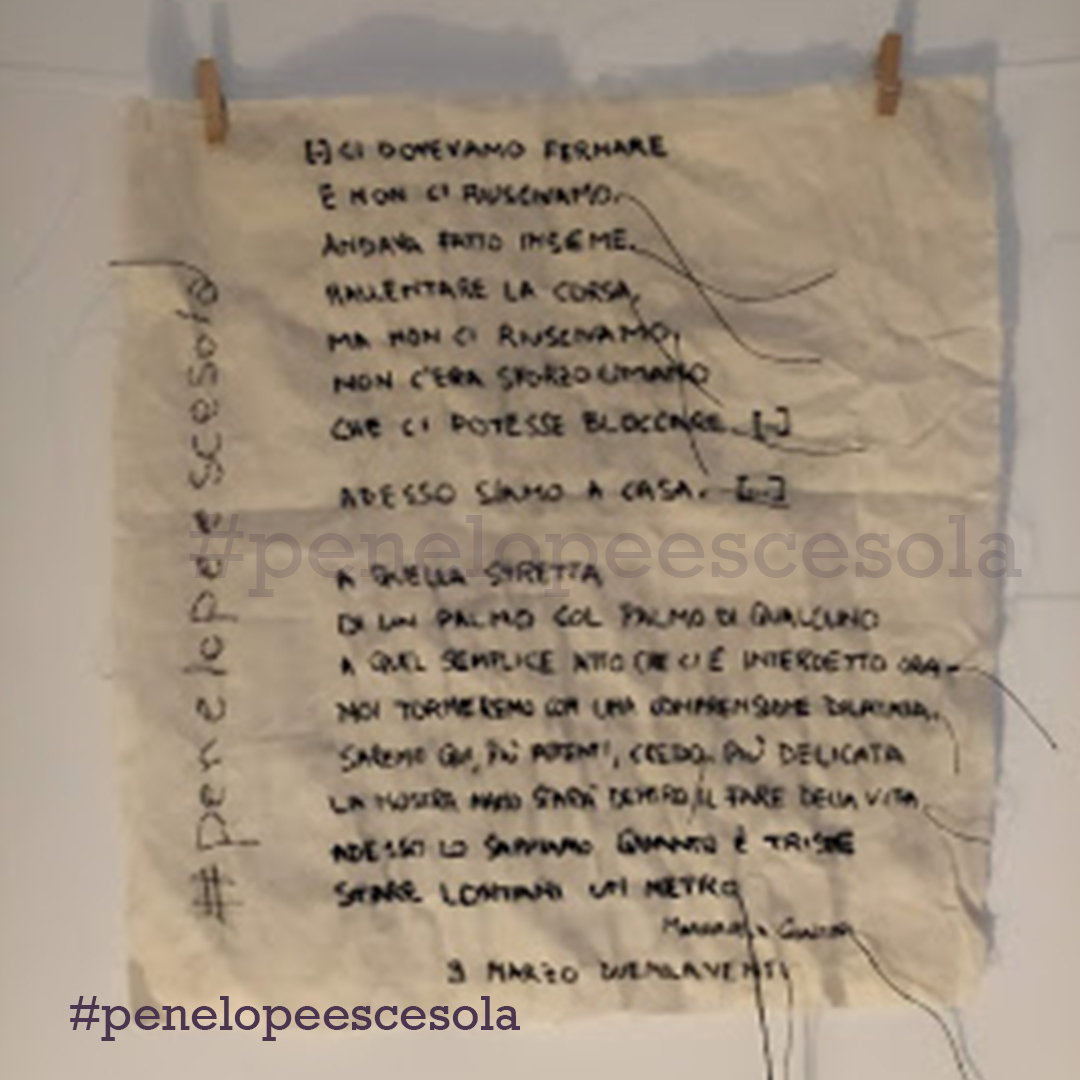 [-] CI DOVEVAMO FERMARE
E NON CI RIUSCIVAMO.
ANDAVA FATTO INSIEME.
RALLENTARE LA CORSA,
MA NON CI RIUSCIVAMO,
NON C'ERA SFORZO UMANO
CHE CI POTESSE BLOCCARE. [...]
ADESSO SIAMO A CASA. [...]
A QUELLA STRETTA
DI UN PALMO COL PALMO DI QUALCUNO
A QUEL SEMPLICE ATTO CHE CI È INTERDETTO ORA-
NOI TORNEREMO CON UNA COMPRENSIONE DILATATA.
SAREMO QUI, PIÙ ATTENTI, CREDO. PIÙ DELICATA
LA NOSTRA MANO SARÀ DENTRO IL FARE DELLA VITA
ADESSO LO SAPPIAMO QUANTO È TRISTE
STARE LONTANI UN METRO
9 MARZO DUEMILAVENTI
#penelopeescesola
#penelopeescesola
#penelopeescesola